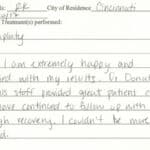 ls: RK City of Residence Cincinnati
Treatment(s) performed:
I am extremely happy and
with my results. Dr. Donat
staff provided great patient c
have continued to follow up with
gh recovery. I couldn't be more
d.